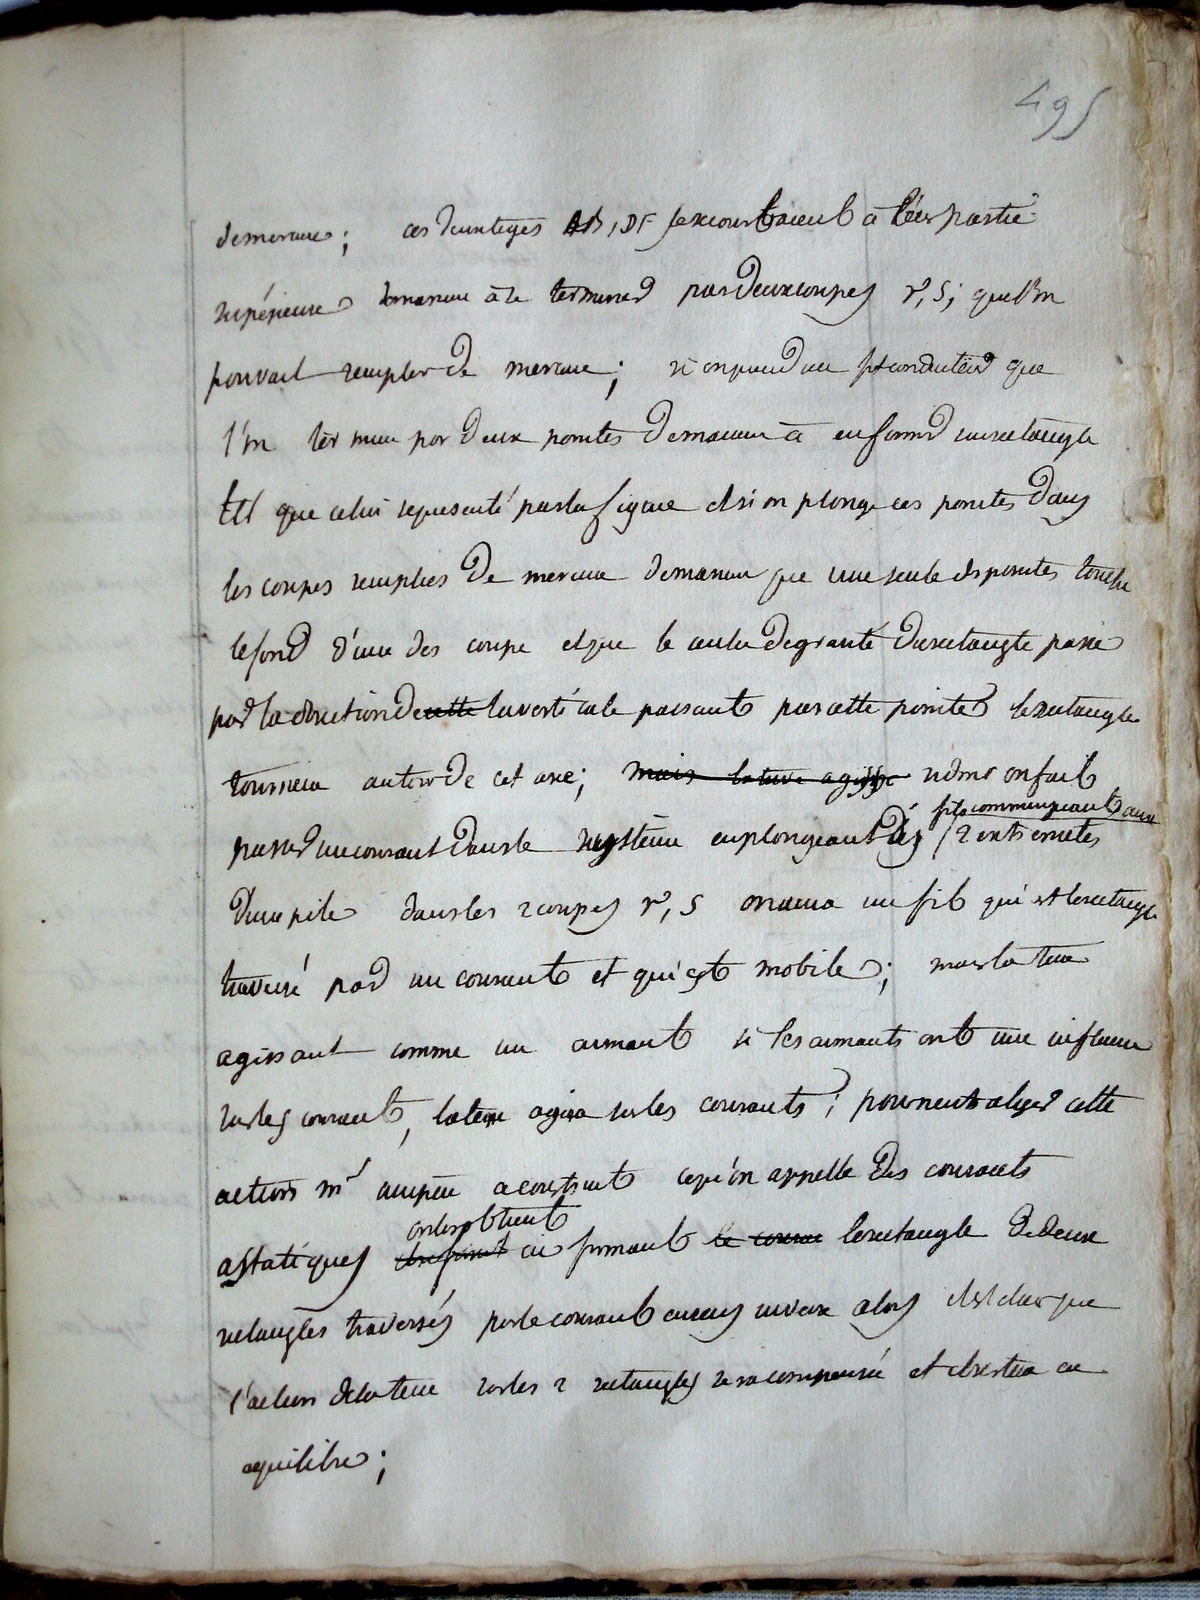 495
de mercure; ces deux tiges AB, DF se recourbaient à leur partie
supérieure de manière à se terminer par deux coupes r, s; que l'on
pouvait remplir de mercure; si on prend un fil conducteur que
l'on termine par deux pointes de manière à en former un rectangle
tel que celui représenté par la figure et si on plonge ces pointes dans
les coupes remplies de mercure de manière que une seule des pointes touche
le fond d'une des coupe et que le centre de gravité du rectangle passe
par la direction de cette la verticale passant par cette pointe le rectangle
tournera autour de cet axe; mais la terre agisse si donc on fait
fils communiquant aux
passer un courant dans le système en plongeant des 2 extrémités
d'une pile dans les 2 coupes r, s on aura un fil qui est le rectangle
traversé par un courant et qui est mobile; mais la terre
agissant comme un aimant si les aimants ont une influence
sur les courant, la terre agira sur les courants; pour neutraliser cette
action mr ampère a construit ce qu'on appelle des courants
on les obtient
astatiques en formant le courant le rectangle de deux
rectangles traversés par le courant en sens inverse alors il est clair que
l'action de la terre sur les 2 rectangles sera compensée et il restera en
equilibre;